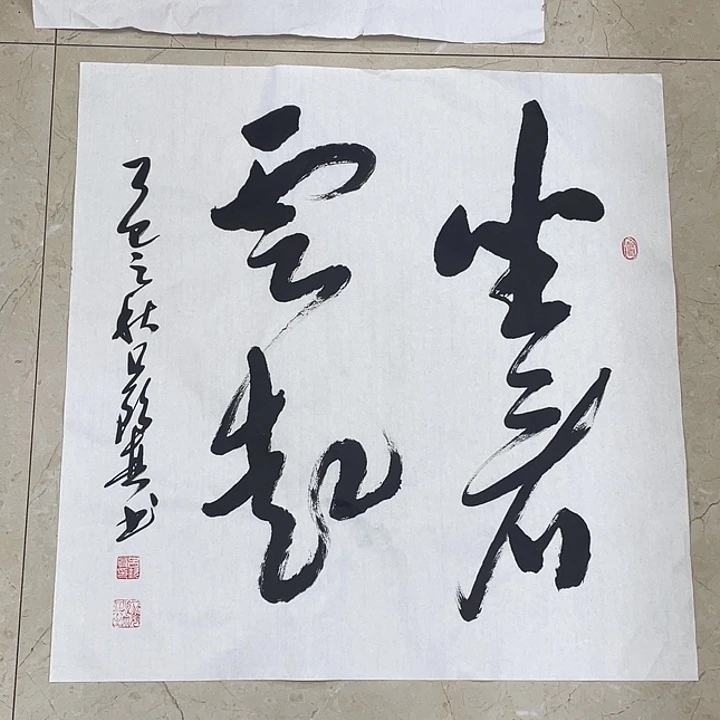 坐看
雲起
乙巳之秋日
书